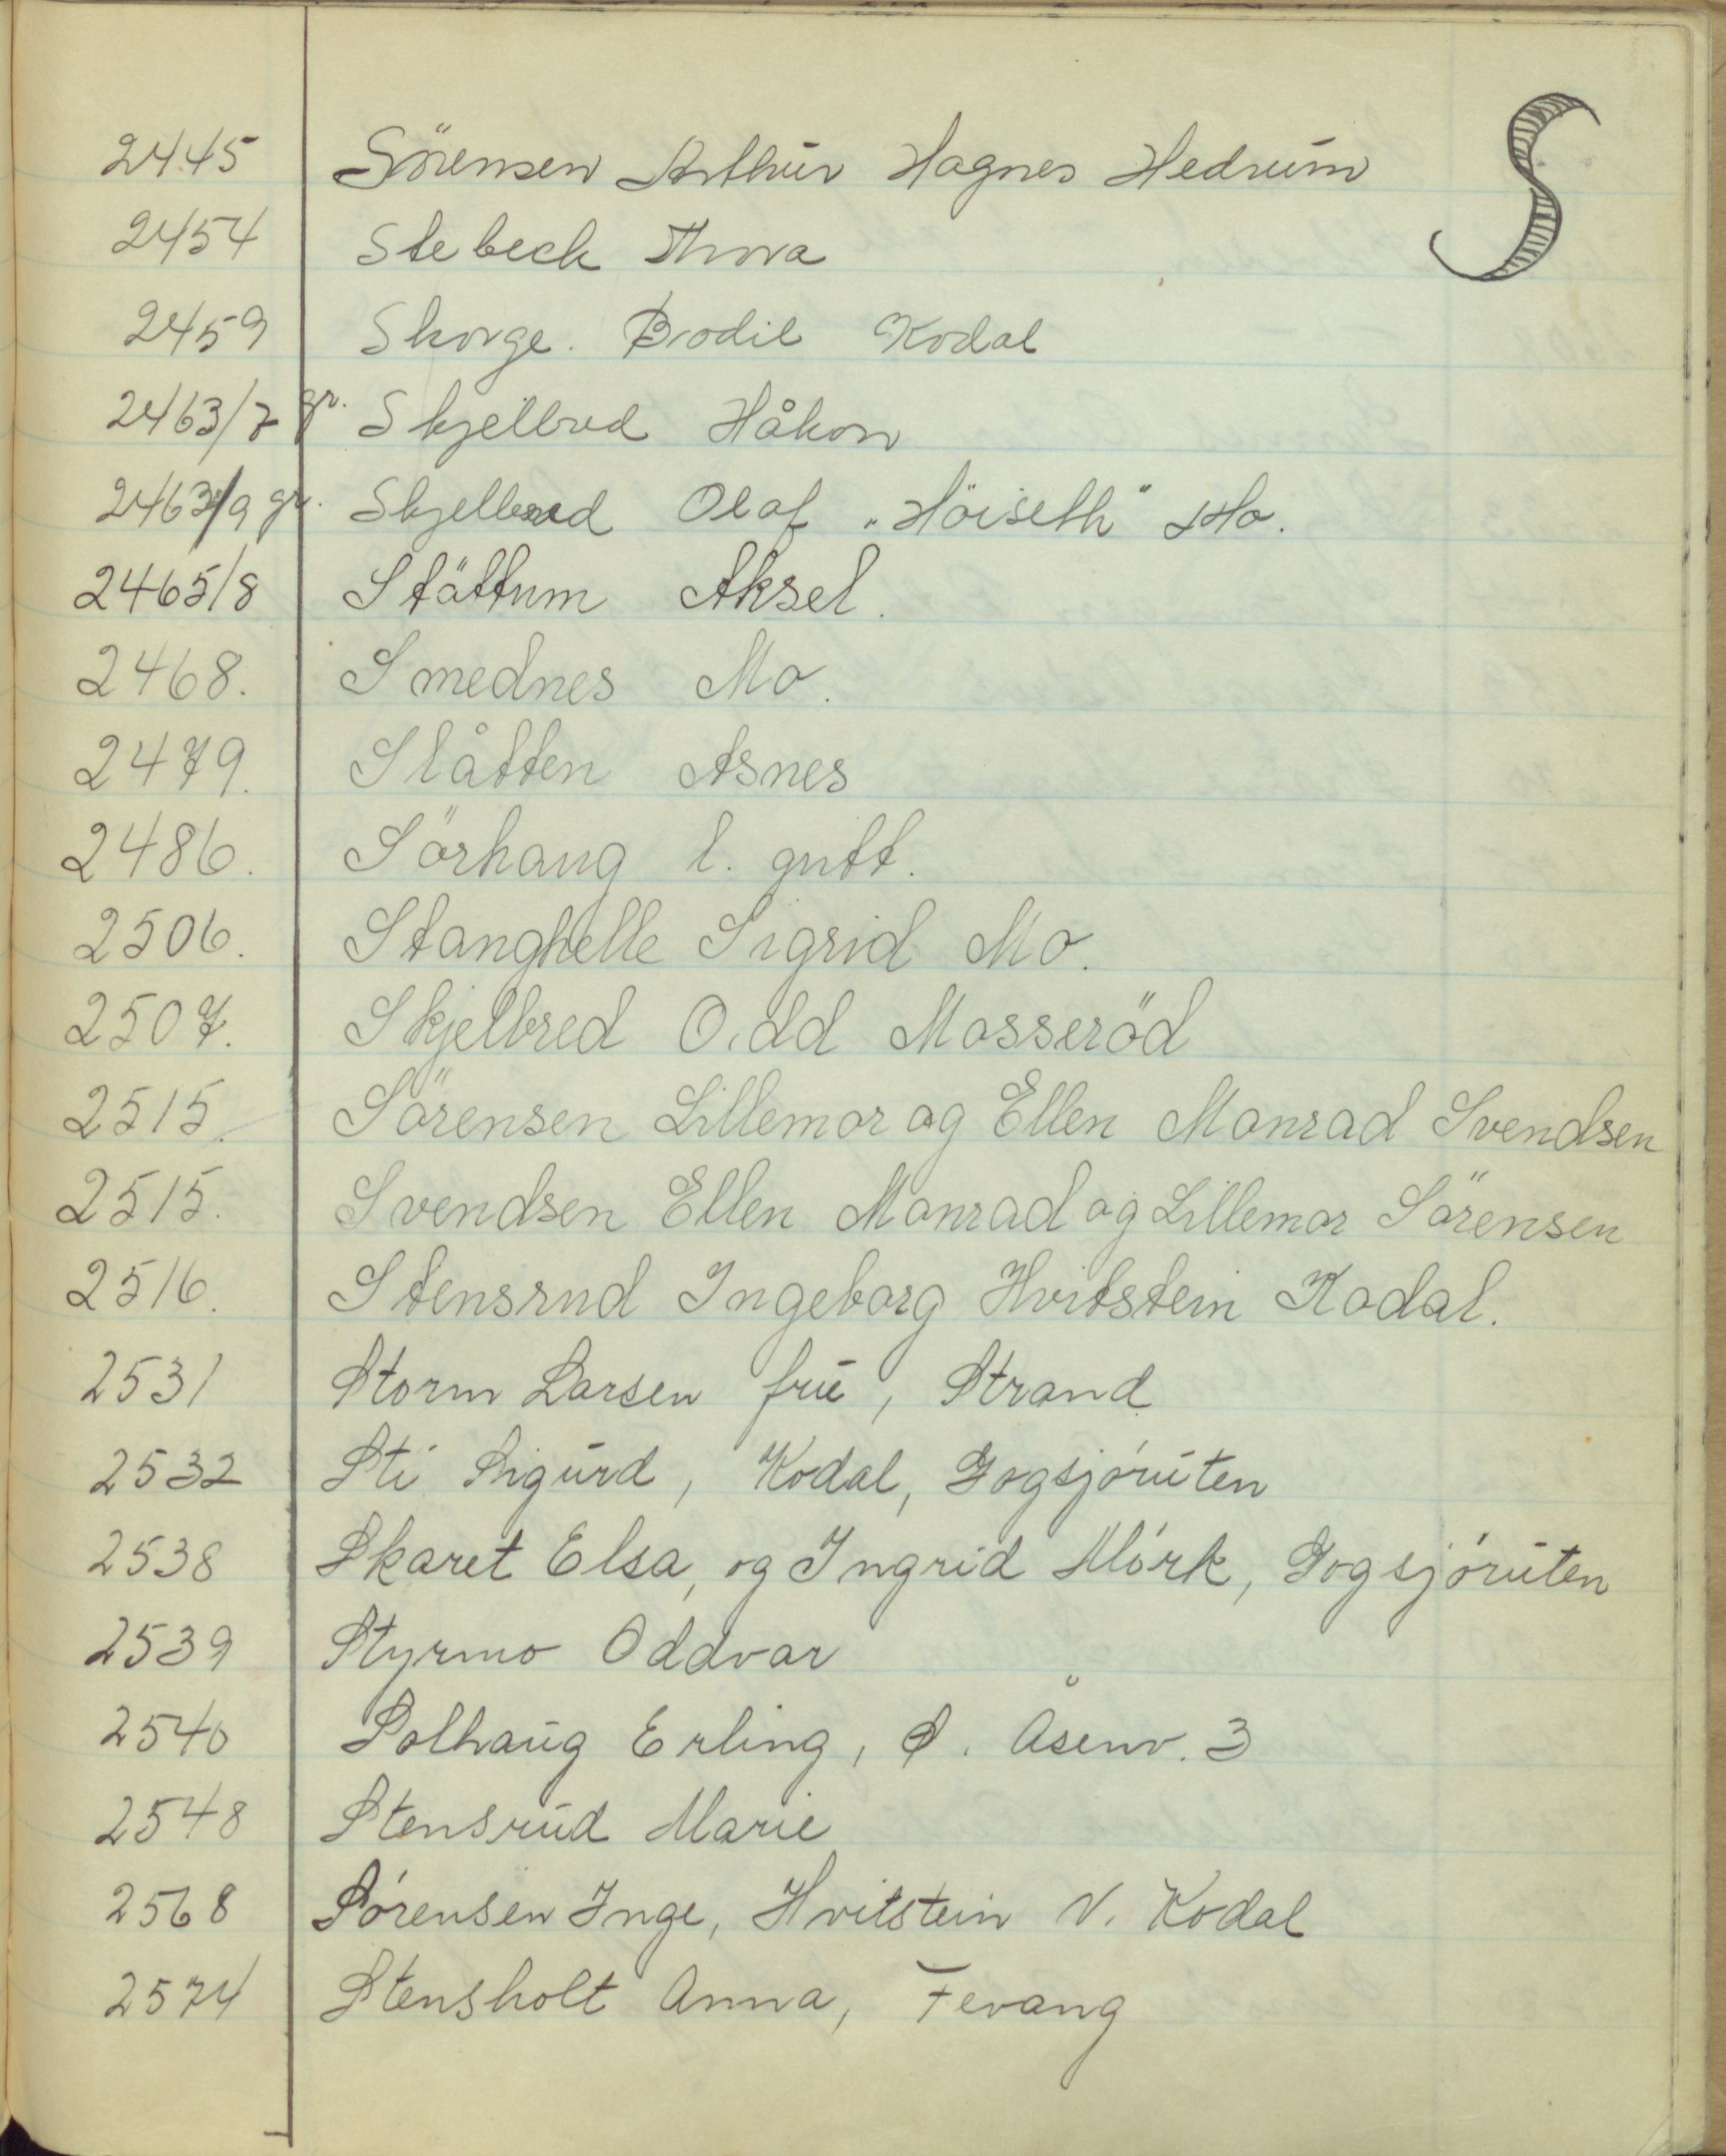 S
2445 Sörensen Arthur Hagnes Hedrum
2454 Stebeck Thora
2459 Skorge. Bodil Kodal
2463/7 gr. Skjelbred Håkon
2463/9 gr. Skjelbred Olaf „Höiseth" Mo.
2465/8 Stättum Aksel.
2468. Smednes Mo.
2479. Slåtten Asnes
2486. Sörhaug l. gutt.
2506. Stanghelle Sigrid Mo.
2507. Skjelbred Odd Mosseröd
2515. Sörensen Lillemor og Ellen Monrad Svendsen
2515. Svendsen Ellen Monrad og Lillemor Sörensen
2516. Stensrud Ingeborg Hvitstein Kodal.
2531 Storm Larsen fru, Strand
2532 Sti Sigurd, Kodal, Gogsjóruten
2538 Skaret Elsa, og Ingrid Mórk, Gogsjóruten
2539 Styrmo Oddvar
2540 Solhaug Erling, Ø. Åsenv. 3
2548 Stensrud Marie
2568 Sórensen Inge, Hvitstein V. Kodal
2574 Stensholt Anna, Fevang